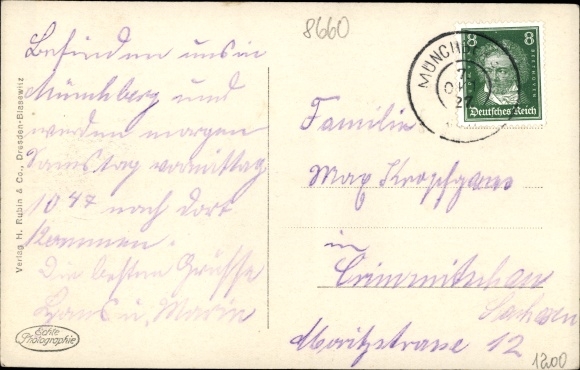 8660
Befinden uns in
Münchberg und
werden morgen
Samstag vormittag
10 47 nach dort
kommen.
Die besten Grüsse
Hans u. Marie
Echte
Photographie
Verlag H. Rubin & Co., Dresden-Blasewitz
MÜNCHB
7
OK
27
8 8
BEETHOVEN
Deutsches Reich
Familie
Max Kropfgans
in
Crimmitschau
Sachsen
Moritzstrasse 12
1200